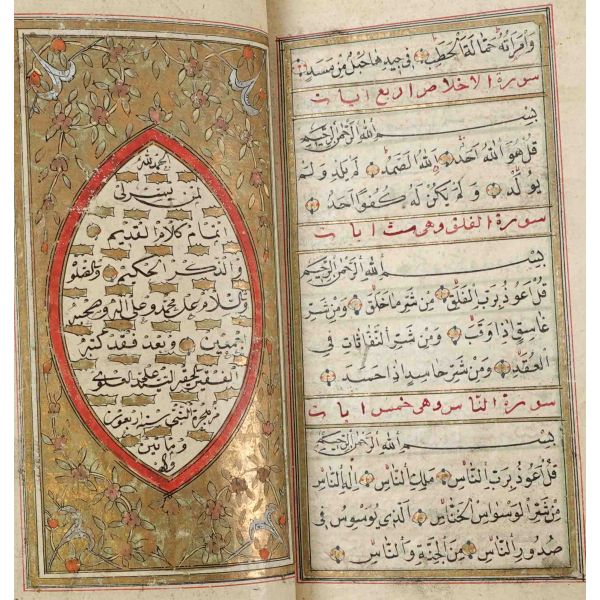 وَامْرَاَتُهُ حَمَّالَةَ الْحَطَبِ فِي جِيدِهَا حَبْلٌ مِنْ مَسَدٍ
سورة الاخلاص اربع ايات
بِسْمِ اللهِ الرَّحْمٰنِ الرَّحِيمِ
قُلْ هُوَ اللهُ اَحَدٌ اَللهُ الصَّمَدُ لَمْ يَلِدْ وَلَمْ
يُولَدْ وَلَمْ يَكُنْ لَهُ كُفُوًا اَحَدٌ
سورة الفلق وهى ايات
بِسْمِ اللهِ الرَّحْمٰنِ الرَّحِيمِ
قُلْ اَعُوذُ بِرَبِّ الْفَلَقِ مِنْ شَرِّ مَا خَلَقَ وَمِنْ شَرِّ
غَاسِقٍ اِذَا وَقَبَ وَمِنْ شَرِّ النَّفَّاثَاتِ فِي
الْعُقَدِ وَمِنْ شَرِّ حَاسِدٍ اِذَا حَسَدَ
سورة الناس وهى خمس ايات
بِسْمِ اللهِ الرَّحْمٰنِ الرَّحِيمِ
قُلْ اَعُوذُ بِرَبِّ النَّاسِ مَلِكِ النَّاسِ اِلٰهِ النَّاسِ
مِنْ شَرِّ الْوَسْوَاسِ الْخَنَّاسِ اَلَّذِي يُوَسْوِسُ فِي
صُدُورِ النَّاسِ مِنَ الْجِنَّةِ وَالنَّاسِ
الحمد لله
الذي يسر لي
اتمام كلام القديم
والذكر الحكيم
والسلام على محمد وعلى اله وصحبه
اجمعين وبعد فقد كتبه
الفقير الحقير السيد محمد
من هجرة النبي سنة اربعون
ومايتين
والف